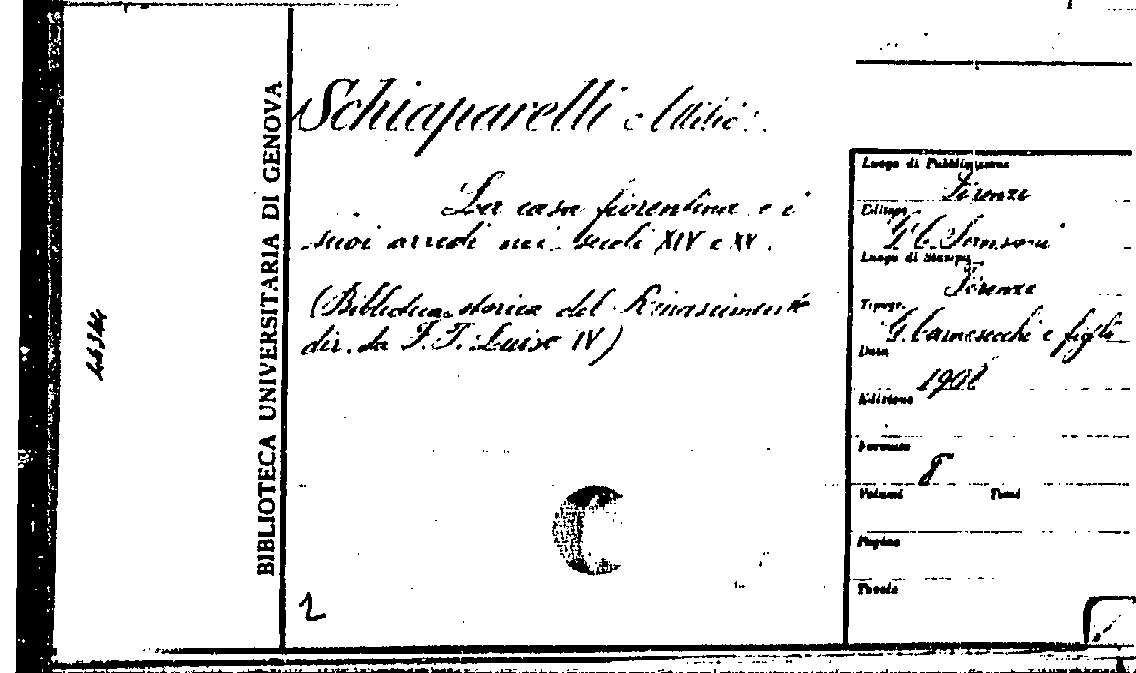 BIBLIOTECA UNIVERSITARIA DI GENOVA
Schiaparelli Attilio.
La casa fiorentina e i
suoi arredi nei secoli XIV e XV.
(Biblioteca storica del Rinascimento
dir. da F. T. Luiso IV)
2
Luogo di Pubblicazione
Firenze
Editore
G. C. Sansoni
Luogo di Stampa
Firenze
Tipogr.
G. Carnesecchi e figli
Data
1908
Edizione
Formato
8
Volumi Tomi
Pagine
Tavole